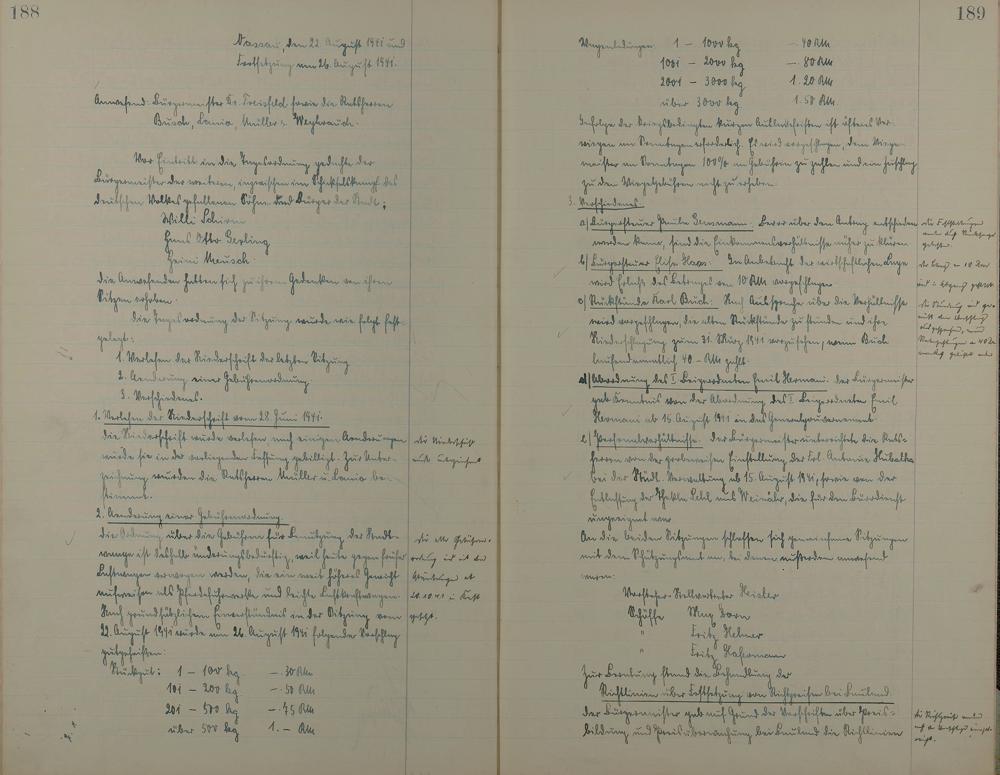 188
Nassau, den 22. August 1941 und
Fortsetzung am 26. August 1941.
Anwesend: Bürgermeister Dr. Treisfeld sowie die Ratsherren
Busch, Lanio, Müller u. Weyhrauch.
Vor Eintritt in die Tagesordnung gedachte der
Bürgermeister der weiteren, inzwischen im Schicksalskampf des
Deutschen Volkes gefallenen Söhne und Bürger der Stadt:
Willi Schirm
Hans Otto Gerling
Heini Meusch.
Die Anwesenden hatten sich zu ihrem Gedenken von ihren
Sitzen erhoben.
Die Tagesordnung der Sitzung wurde wie folgt fest-
gelegt:
1. Verlesen der Niederschrift der letzten Sitzung
2. Aenderung einer Gebührenordnung
3. Verschiedenes.
1. Verlesen der Niederschrift vom 28. Juni 1941.
Die Niederschrift wurde verlesen, nach einigen Aenderungen
wurde sie in der vorliegenden Fassung gebilligt. Zur Unter-
zeichnung wurden die Ratsherren Müller u. Lanio be-
stimmt.
Die Niederschrift
2. Aenderung einer Gebührenordnung.
Die Ordnung über die Gebühren für Benutzung der Stadt-
waage ist deshalb änderungsbedürftig, weil heute gegen früher
Lastwagen gewogen werden, die ein weit höheres Gewicht
aufweisen als Pferdefuhrwerke und leichte Lastkraftwagen.
Nach grundsätzlichem Einverständnis in der Sitzung vom
22. August 1941 wurde am 26. August 1941 folgender Vorschlag
gutgeheißen:
Die alte Gebühren-
ordnung ist mit den
Abänderungen ab
20.10.41 in Kraft
gesetzt.
Stückgut: 1 – 100 kg –.30 RM
101 – 200 kg –.50 RM
201 – 500 kg –.75 RM
über 500 kg 1.– RM
189
Wagenladungen 1 – 1000 kg –.40 RM
1001 – 2000 kg –.80 RM
2001 – 3000 kg 1.20 RM
über 3000 kg 1.50 RM.
Infolge der kriegsbedingten kurzen Ausladefristen ist öfteres Ver-
wiegen an Sonntagen erforderlich. Es wird vorgeschlagen, dem Wiege-
meister an Sonntagen 100% an Gebühren zu zahlen und ein Zuschlag
zu den Wiegegebühren nicht zu erheben.
3. Verschiedenes.
a) Bürgersteuer Paula Bermann. Bevor über den Antrag entschieden
werden kann, sind die Einkommensverhältnisse näher zu klären.
b) Bürgersteuer Elise Haxs. In Anbetracht der wirtschaftlichen Lage
wird Erlaß des Betrages von 10 RM vorgeschlagen.
c) Rückstände Karl Buch. Nach Aussprache über die Verhältnisse
wird vorgeschlagen, die alten Rückstände zu stunden und ihre
Niederschlagung zum 31. März 1941 vorzusehen, wenn Buch
laufend monatlich 40.– RM zahlt.
d) Abordnung des I. Beigeordneten Emil Hermani. Der Bürgermeister
gab Kenntnis von der Abordnung des I. Beigeordneten Emil
Hermani ab 15. August 1941 in das Generalgouvernement.
e) Personalverhältnisse. Der Bürgermeister unterrichtete die Rats-
herren von der probeweisen Einstellung der Frl. Antonie Hubaleka
bei der Städt. Verwaltung ab 15. August 1941, sowie von der
Entlassung der Thekla Lebl aus Weinähr, die für den Bürodienst
ungeeignet war.
An die beiden Sitzungen schlossen sich gemeinsame Sitzungen
mit dem Schätzungsamt an, bei denen außerdem anwesend
waren:
Vorsteher-Stellvertreter Meister
Schöffe Aug. Born
" Fritz Helmer
" Fritz Hastermann
Zur Beratung stand die Behandlung der
Richtlinien über Festsetzung von Richtpreisen bei Bauland.
Der Bürgermeister gab auf Grund der Vorschriften über Preis-
bildung und Preisüberwachung bei Bauland die Richtlinien